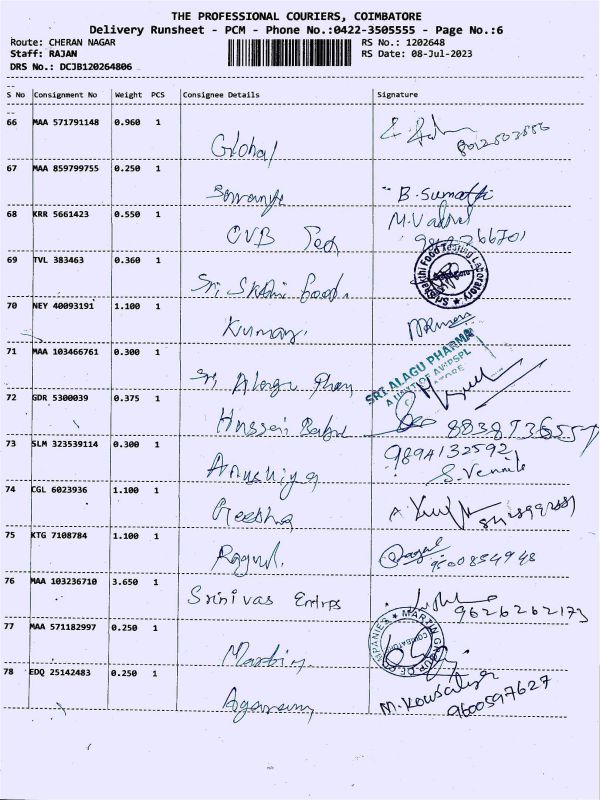 THE PROFESSIONAL COURIERS, COIMBATORE
Delivery Runsheet - PCM - Phone No.:0422-3505555 - Page No.:6
Route: CHERAN NAGAR RS No.: 1202648
Staff: RAJAN RS Date: 08-Jul-2023
DRS No.: DCJB120264806
S No Consignment No Weight PCS Consignee Details Signature
66 MAA 571791148 0.960 1
Global
67 MAA 859799755 0.250 1
B. Sumathi
68 KRR 5661423 0.550 1
CVB Tech
69 TVL 383463 0.360 1
Sri Sakthi Food Testing Laboratory
Sri Sakthi food.
70 NEY 40093191 1.100 1
Kumar.
71 MAA 103466761 0.300 1
SRI ALAGU PHARMA
A UNIT OF AWPSPL
Sri Alagu Pharm
72 GDR 5300039 0.375 1
Hussain Babu 8838736557
73 SLM 323539114 0.300 1
9894132592
Anushiya S. Vennila
74 CGL 6023936 1.100 1
Preetha
75 KTG 7108784 1.100 1
Ragul. Ragul
9500854948
76 MAA 103236710 3.650 1
Srinivas Entrps 9626262173
77 MAA 571182997 0.250 1
MARTIN GROUP OF COMPANIES
Martin.
78 EDQ 25142483 0.250 1
Agaram M. Kowsalya
9600597627